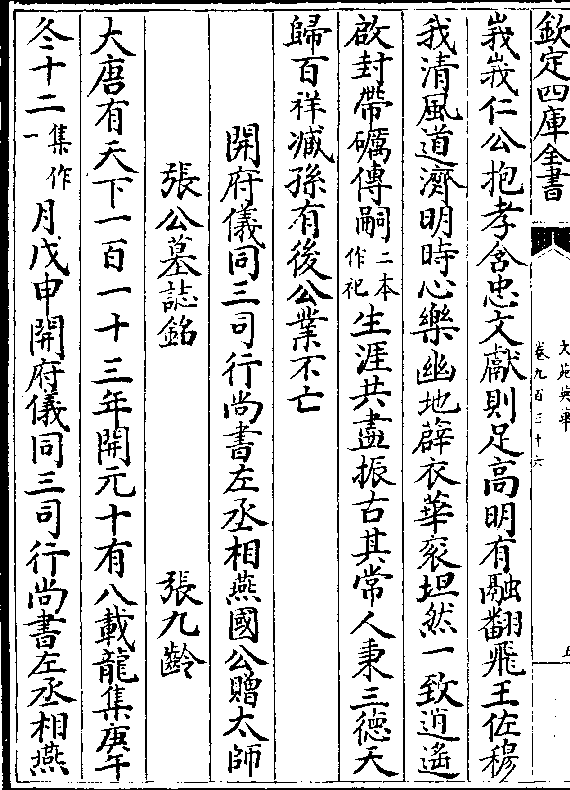 欽定四庫全書
文苑英華
卷九百三十六
五
峩峩仁公抱孝含忠文獻則足高明有融翻飛王佐穆
我清風道濟明時心樂幽地薜衣華衮坦然一致逍遙
啟封帶礪傳嗣二本作祀生涯共盡振古其常人秉三徳天
歸百祥滅孫有後公業不亡
開府儀同三司行尚書左丞相燕國公贈太師
張公墓誌銘 張九齡
大唐有天下一百一十三年開元十有八載龍集庚午
冬十二一集作月戊申開府儀同三司行尚書左丞相燕